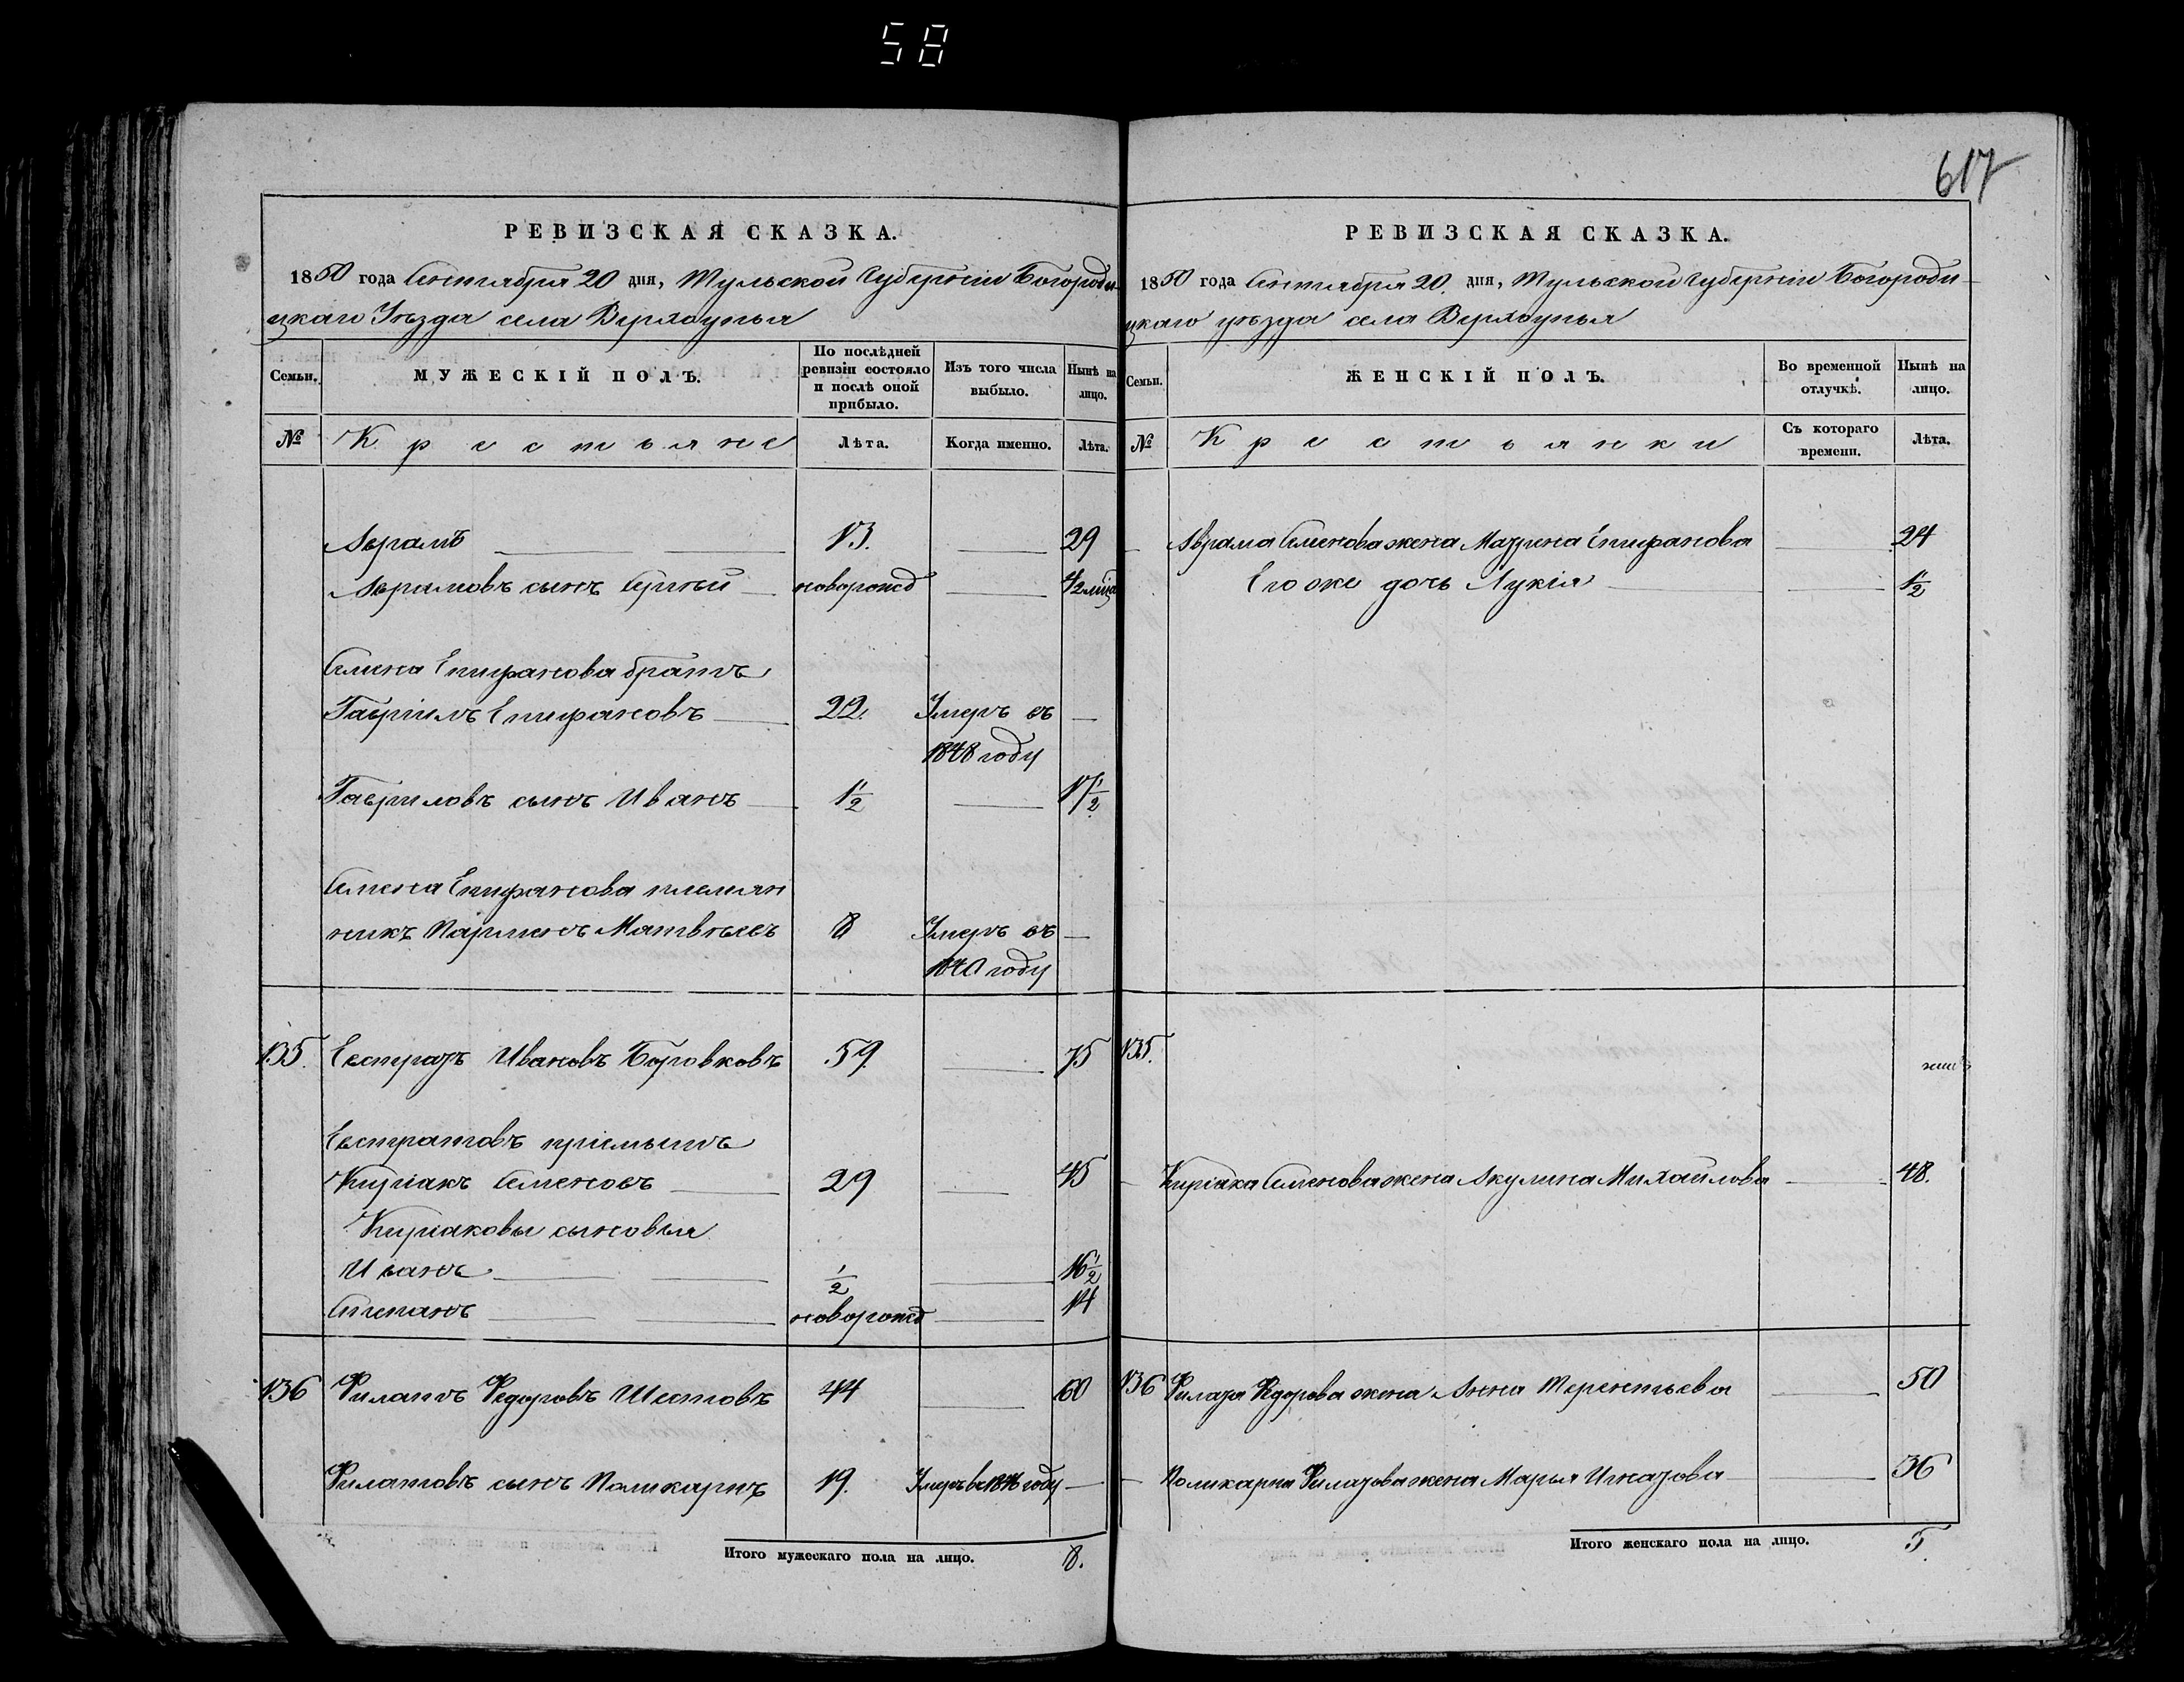 58
617
РЕВИЗСКАЯ СКАЗКА.
1850 года Сентября 20 дня, Тульской Губерніи Богороди-
цкаго Уѣзда села Верхоупья
Семьи. МУЖЕСКІЙ ПОЛЪ. По послѣдней ревизіи состояло и послѣ оной прибыло. Изъ того числа выбыло. Нынѣ на лицо.
№ Крестьяне Лѣта. Когда именно. Лѣта.
Аврамъ 13. 29
Аврамовъ сынъ Сергѣй новорожд 1/2 мца
Семена Епифанова братъ
Гаврилъ Епифановъ 22. Умеръ въ
1848 году
Гавриловъ сынъ Иванъ 1 1/2 17 1/2
Семена Епифанова племян
никъ Парменъ Матвѣевъ 8 Умеръ въ
1840 году
135. Евстратъ Ивановъ Боровковъ 59. 75
Евстратовъ пріемышъ
Киріакъ Семеновъ 29 45
Киріаковы сыновья
Иванъ 1/2 16 1/2
Степанъ новорожд 14
136 Филатъ Федоровъ Шестовъ 44 60
Филатовъ сынъ Поликарпъ 19. Умеръ въ 1846 году
Итого мужескаго пола на лицо. 8.
РЕВИЗСКАЯ СКАЗКА.
1850 года Сентября 20. дня, Тульской Губерніи Богороди-
цкаго уѣзда села Верхоупья
Семьи. ЖЕНСКІЙ ПОЛЪ. Во временной отлучкѣ. Нынѣ на лицо.
№ Крестьянки Съ котораго времени. Лѣта.
Аврама Семенова жена Мавра Епифанова 24
Его же дочь Лукія 1 1/2
135.
Киріака Семенова жена Акулина Михайлова 48.
136 Филата Федорова жена Анна Терентьева 50
Поликарпа Филатова жена Марья Игнатова 36
Итого женскаго пола на лицо. 5.